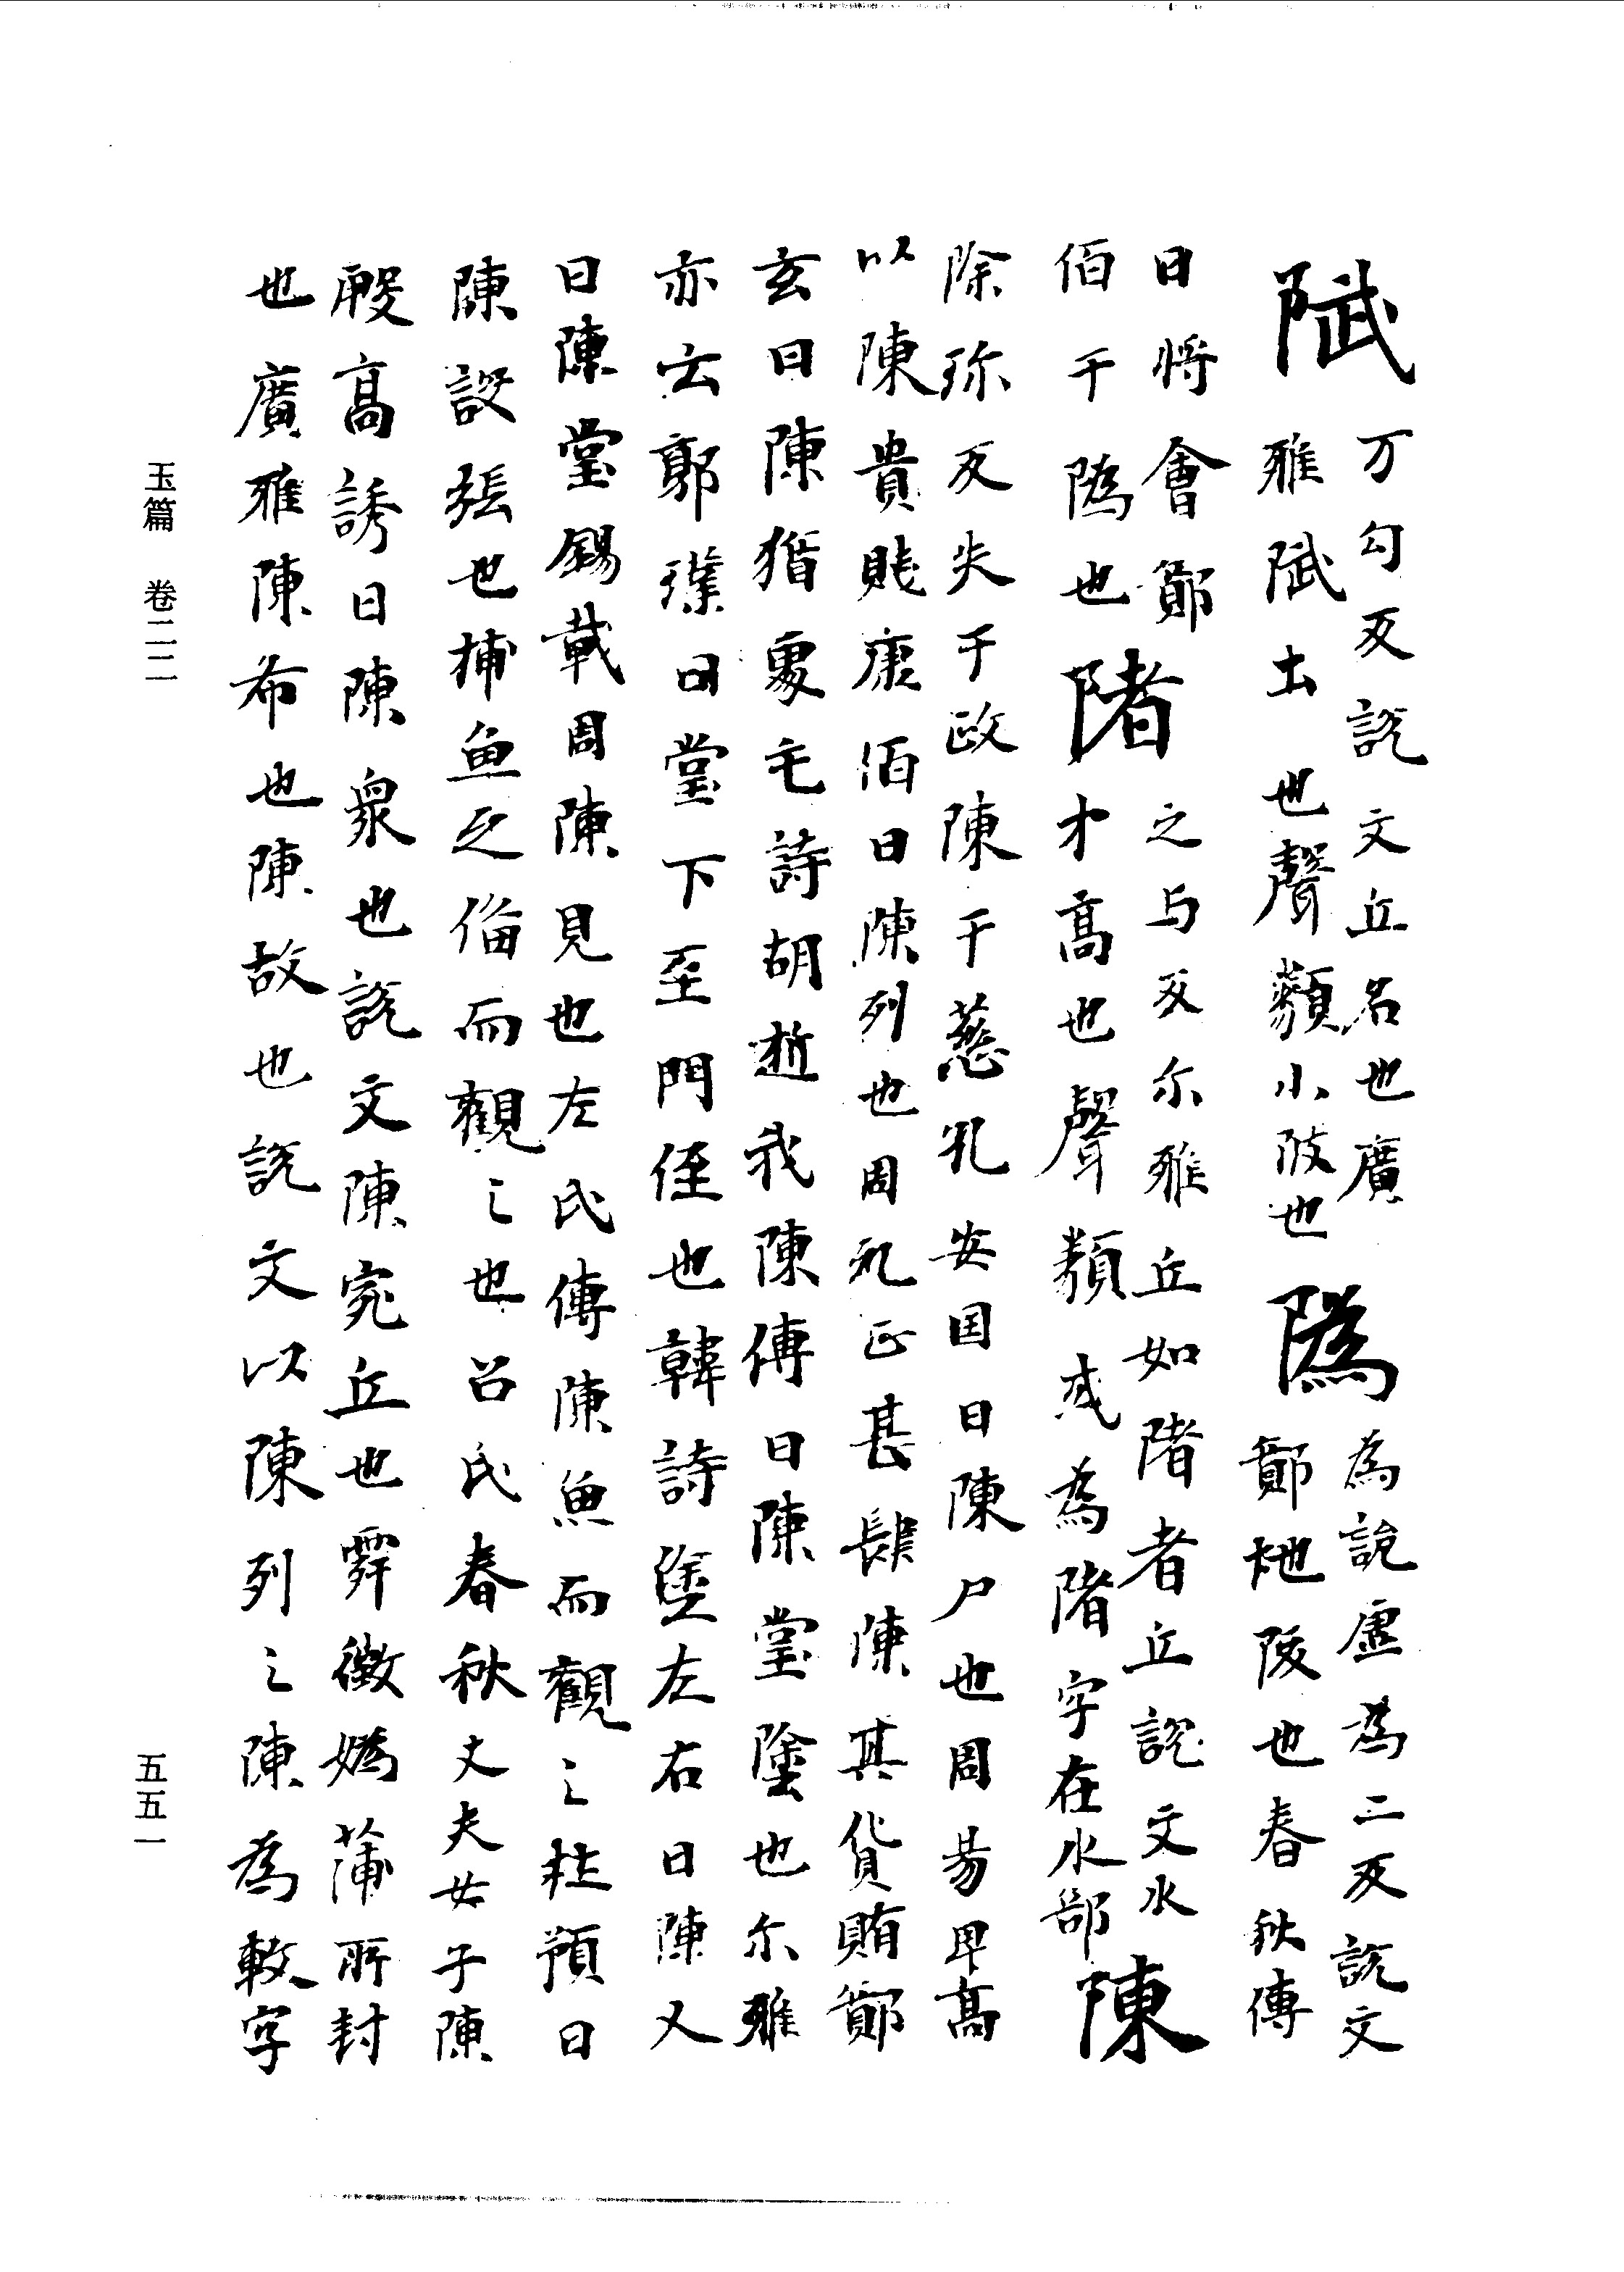 陚
万勾反說文丘名也廣
雅陚土也聲類小陂也
為詭虛為二反說文
鄭地阪也春秋傳
曰將會鄭
伯于也
陼
之与反尓雅丘如陼者丘說文水
才高也聲類或為陼字在水部
陳
除珎反失于政陳于慈孔安囯曰陳尸也周易卑高
以陳貴賤康伯曰陳列也周礼正甚肆陳其貨賄鄭
玄曰陳猶處毛詩胡逝我陳傳曰陳堂塗也尓雅
亦云郭璞曰堂下至門侄也韓詩塗左右曰陳又
曰陳堂錫載周陳見也左氏傳陳魚而觀之杜預曰
陳設張也捕魚之俻而觀之也呂氏春秋丈夫女子陳
殷高誘曰陳衆也說文陳宛丘也舜徴媯蒲所封
也廣雅陳布也陳故也說文以陳列之陳為敶字
玉篇 卷二二
五五一